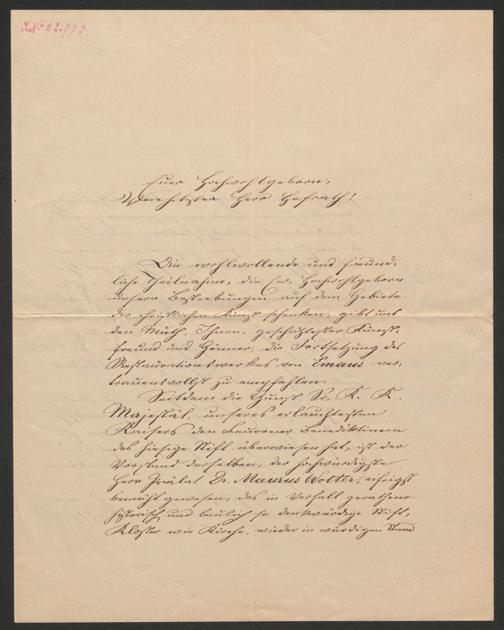 J.N. 22.773
Euer Hochwohlgeboren,
Verehrtester Herr Hofrath!
Die wohlwollende und freund-
liche Theilnahme, die Ew. Hochwohlgeboren
unsern Bestrebungen auf dem Gebiete
der christlichen Kunst schenken, gibt uns
den Muth, Ihnen, geschätztester Kunst-
freund und Gönner, die Fortsetzung des
Restaurationswerkes von Emaus ver-
trauensvollst zu empfehlen.
Seitdem die Gunst Sr. K. K.
Majestät, unseres erlauchtesten
Kaisers den Beuroner Benediktinern
das hiesige Stift überwiesen hat, ist der
Vorstand derselben, der hochwürdigste
Herr Prälat Dr. Maurus Wolter, eifrigst
bemüht gewesen, das in Verfall gerathene
historisch und baulich so denkwürdige Stift,
Kloster wie Kirche, wieder in würdigen Stand